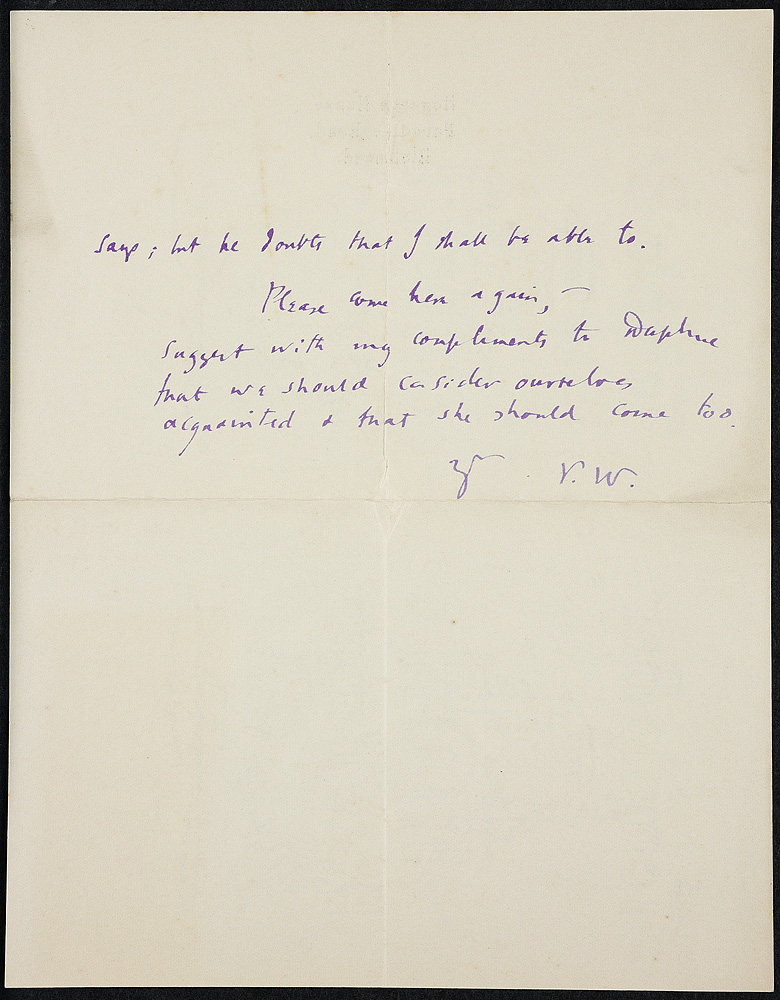 says; but he doubts that I shall be able to.
Please come here again, —
suggest with my compliments to Daphne
that we should consider ourselves
acquainted & that she should come too.
Yr V. W.